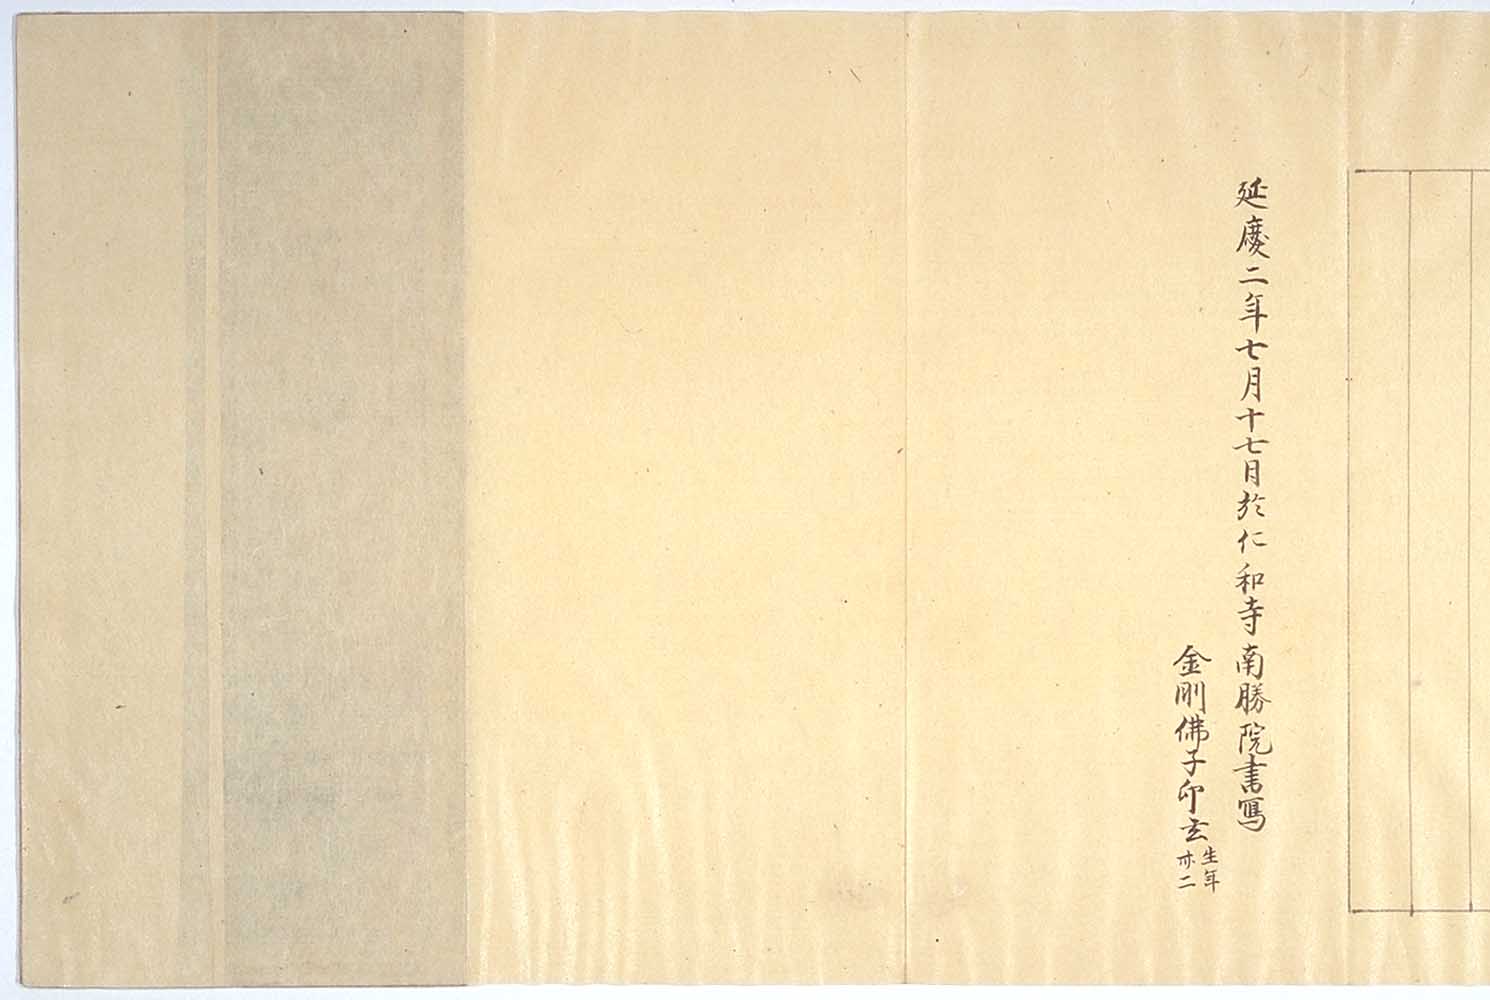 延慶二年七月十七日於仁和寺南勝院書寫
金剛佛子印玄 生年
卅二